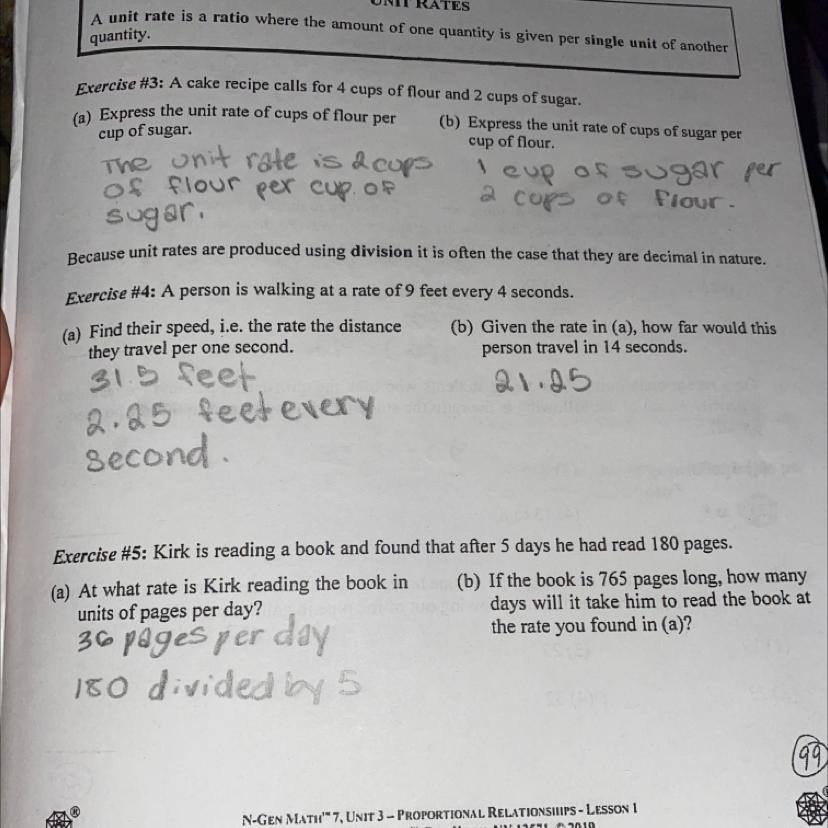 UNIT RATES
A unit rate is a ratio where the amount of one quantity is given per single unit of another
quantity.
Exercise #3: A cake recipe calls for 4 cups of flour and 2 cups of sugar.
(a) Express the unit rate of cups of flour per
cup of sugar.
The unit rate is 2 cups
of flour per cup of
sugar.
(b) Express the unit rate of cups of sugar per
cup of flour.
1 cup of sugar per
2 cups of flour.
Because unit rates are produced using division it is often the case that they are decimal in nature.
Exercise #4: A person is walking at a rate of 9 feet every 4 seconds.
(a) Find their speed, i.e. the rate the distance
they travel per one second.
31.5 feet
2.25 feet every
second.
(b) Given the rate in (a), how far would this
person travel in 14 seconds.
21.25
Exercise #5: Kirk is reading a book and found that after 5 days he had read 180 pages.
(a) At what rate is Kirk reading the book in
units of pages per day?
36 pages per day
180 divided by 5
(b) If the book is 765 pages long, how many
days will it take him to read the book at
the rate you found in (a)?
99
N-GEN MATH™ 7, UNIT 3 – PROPORTIONAL RELATIONSHIPS - LESSON 1